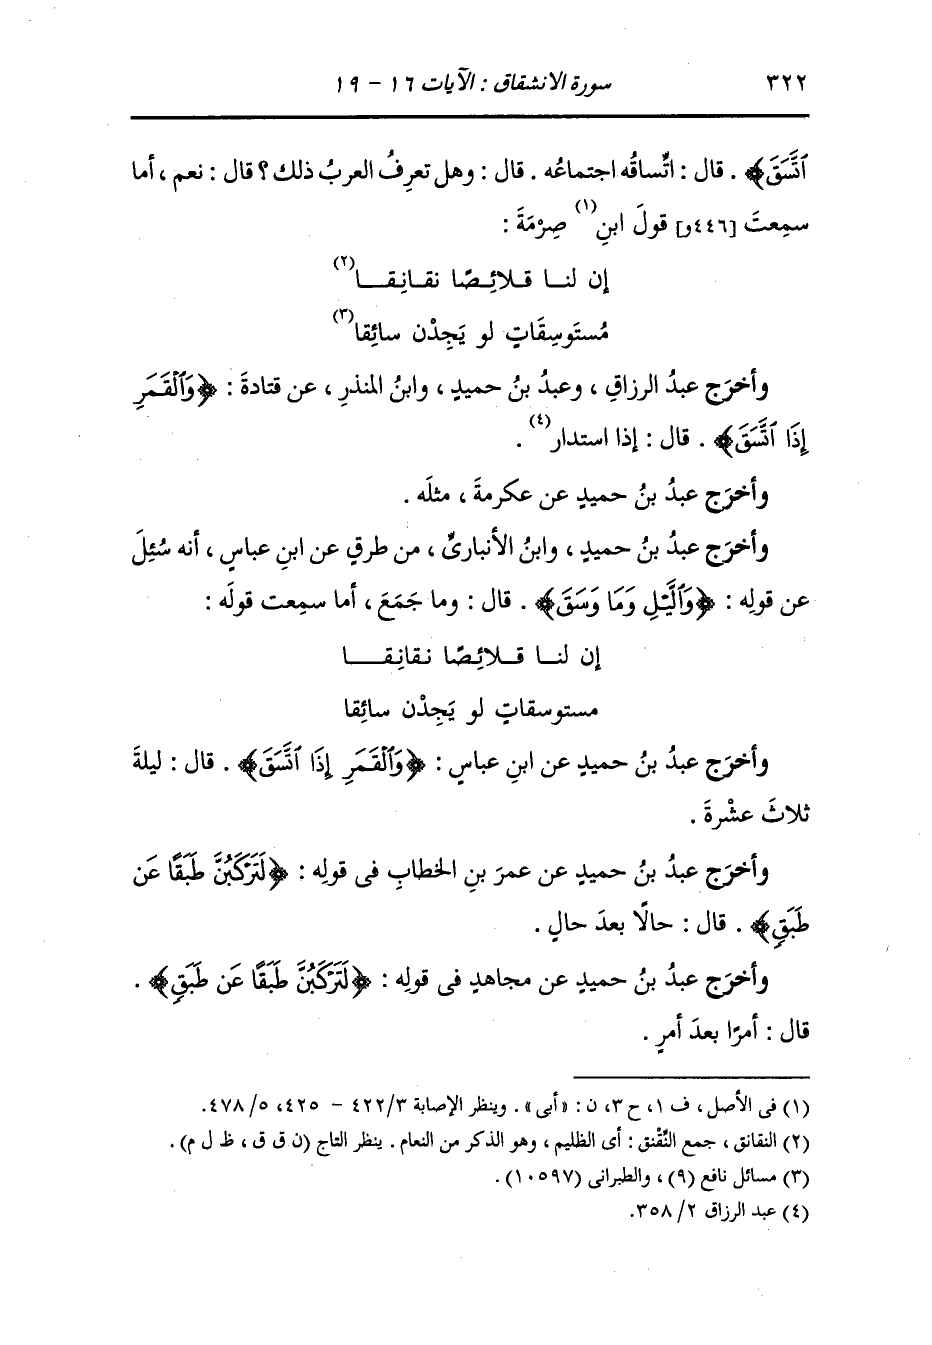 ٣٢٢ سورة الانشقاق : الآيات ١٦ - ١٩
ٱتَّسَقَ﴾ . قال : اتِّساقُه اجتماعُه . قال : وهل تعرِفُ العربُ ذلك ؟ قال : نعم ، أما
سمِعتَ [٤٤٦و] قولَ ابنِ(١) صِرْمَةَ :
إن لنـا قـلائِـصًا نقـانِقـا(٢)
مُستَوسِقَاتٍ لو يَجِدْن سائِقا(٣)
وأخرَج عبدُ الرزاقِ ، وعبدُ بنُ حميدٍ ، وابنُ المنذرِ ، عن قتادةَ : ﴿وَٱلْقَمَرِ
إِذَا ٱتَّسَقَ﴾ . قال : إذا استدار(٤) .
وأخرَج عبدُ بنُ حميدٍ عن عكرمةَ ، مثلَه .
وأخرَج عبدُ بنُ حميدٍ ، وابنُ الأنبارىِّ ، من طرقٍ عن ابنِ عباسٍ ، أنه سُئِلَ
عن قولِه : ﴿وَٱلَّيْلِ وَمَا وَسَقَ﴾ . قال : وما جَمَعَ ، أما سمِعت قولَه :
إن لنـا قـلائِـصًا نقانِقـا
مستوسقاتٍ لو يَجِدْن سائِقا
وأخرَج عبدُ بنُ حميدٍ عن ابنِ عباسٍ : ﴿وَٱلْقَمَرِ إِذَا ٱتَّسَقَ﴾ . قال : ليلةَ
ثلاثَ عشْرةَ .
وأخرَج عبدُ بنُ حميدٍ عن عمرَ بنِ الخطابِ فى قولِه : ﴿لَتَرْكَبُنَّ طَبَقًا عَن
طَبَقٍ﴾ . قال : حالًا بعدَ حالٍ .
وأخرَج عبدُ بنُ حميدٍ عن مجاهدٍ فى قولِه : ﴿لَتَرْكَبُنَّ طَبَقًا عَن طَبَقٍ﴾ .
قال : أمرًا بعدَ أمرٍ .
(١) فى الأصل ، ف ١، ح ٣، ن : «أبى» . وينظر الإصابة ٤٢٢/٣ - ٤٢٥، ٤٧٨/٥.
(٢) النقانق ، جمع النِّقْنق : أى الظليم ، وهو الذكر من النعام . ينظر التاج (ن ق ق ، ظ ل م) .
(٣) مسائل نافع (٩) ، والطبرانى (١٠٥٩٧) .
(٤) عبد الرزاق ٢/ ٣٥٨.